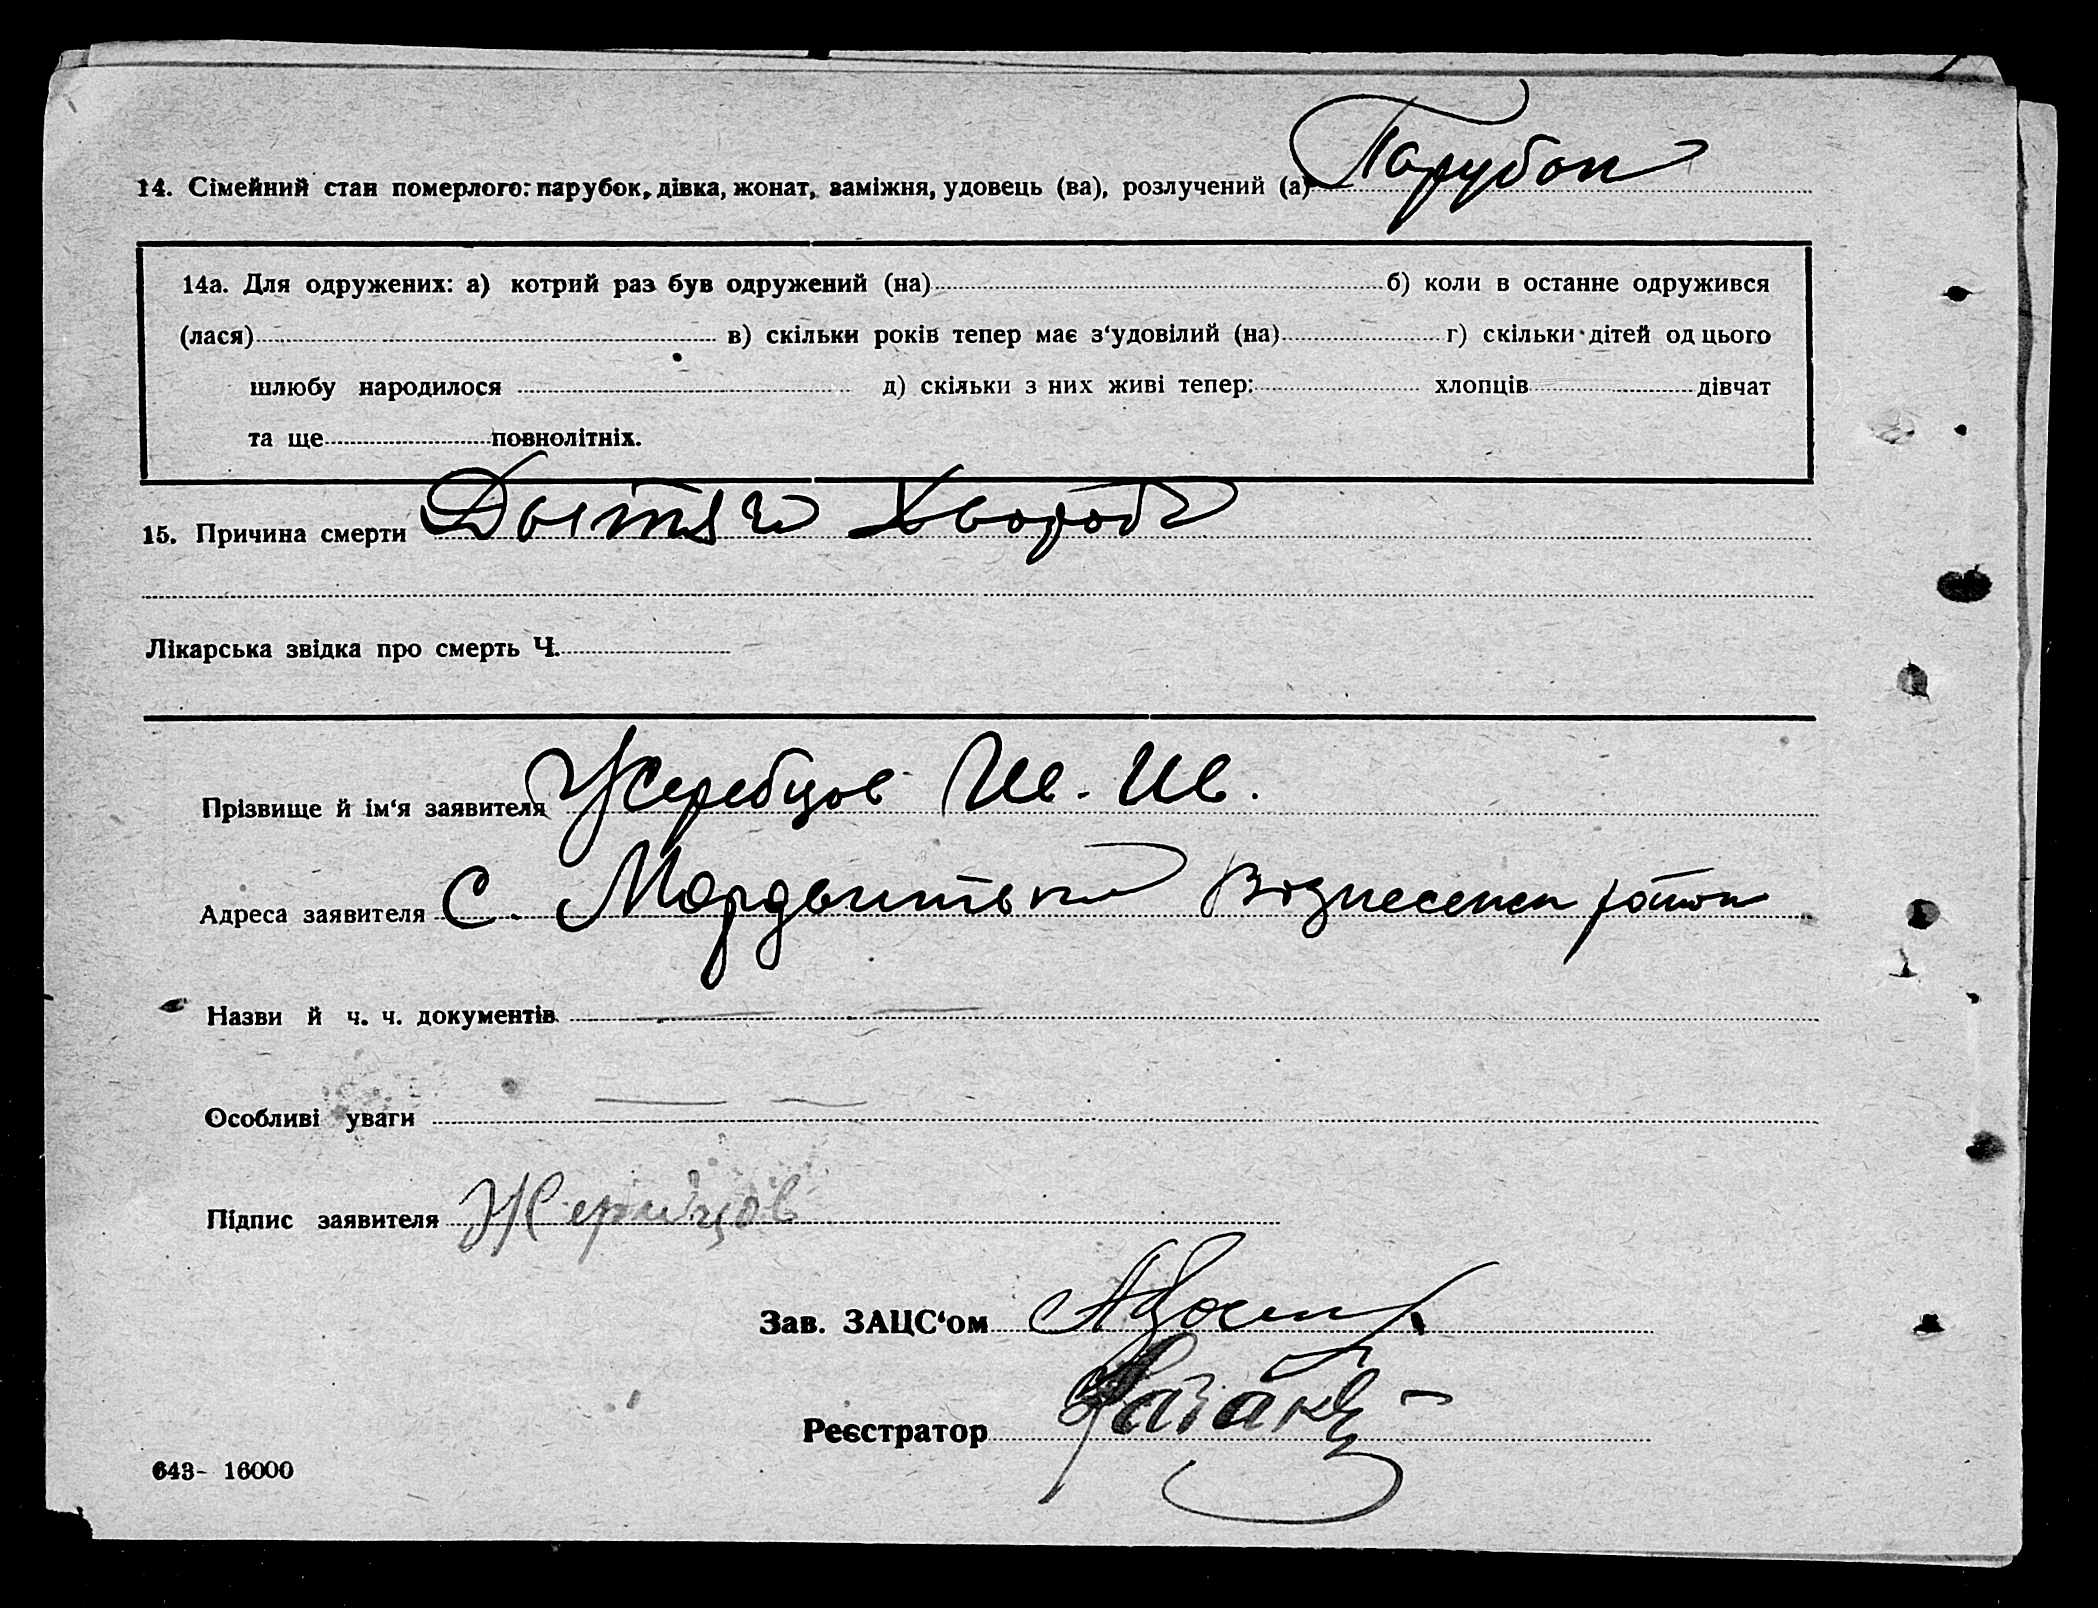 14. Сімейний стан померлого: парубок, дівка, жонат, заміжня, удовець (ва), розлучений (а) Парубок
14а. Для одружених: а) котрий раз був одружений (на) б) коли в останне одружився
(лася) в) скільки років тепер має з‘удовілий (на) г) скільки дітей од цього
шлюбу народилося д) скільки з них живі тепер: хлопців дівчат
та ще повнолітніх.
15. Причина смерти Дытяч Хвороб
Лікарська звідка про смерть Ч.
Прізвище й ім‘я заявителя Жеребцов Ив. Ив.
Адреса заявителя С. Вознесенск район
Назви й ч. ч. документів
Особливі уваги
Підпис заявителя
Зав. ЗАЦС‘ом
Реєстратор
643- 16000